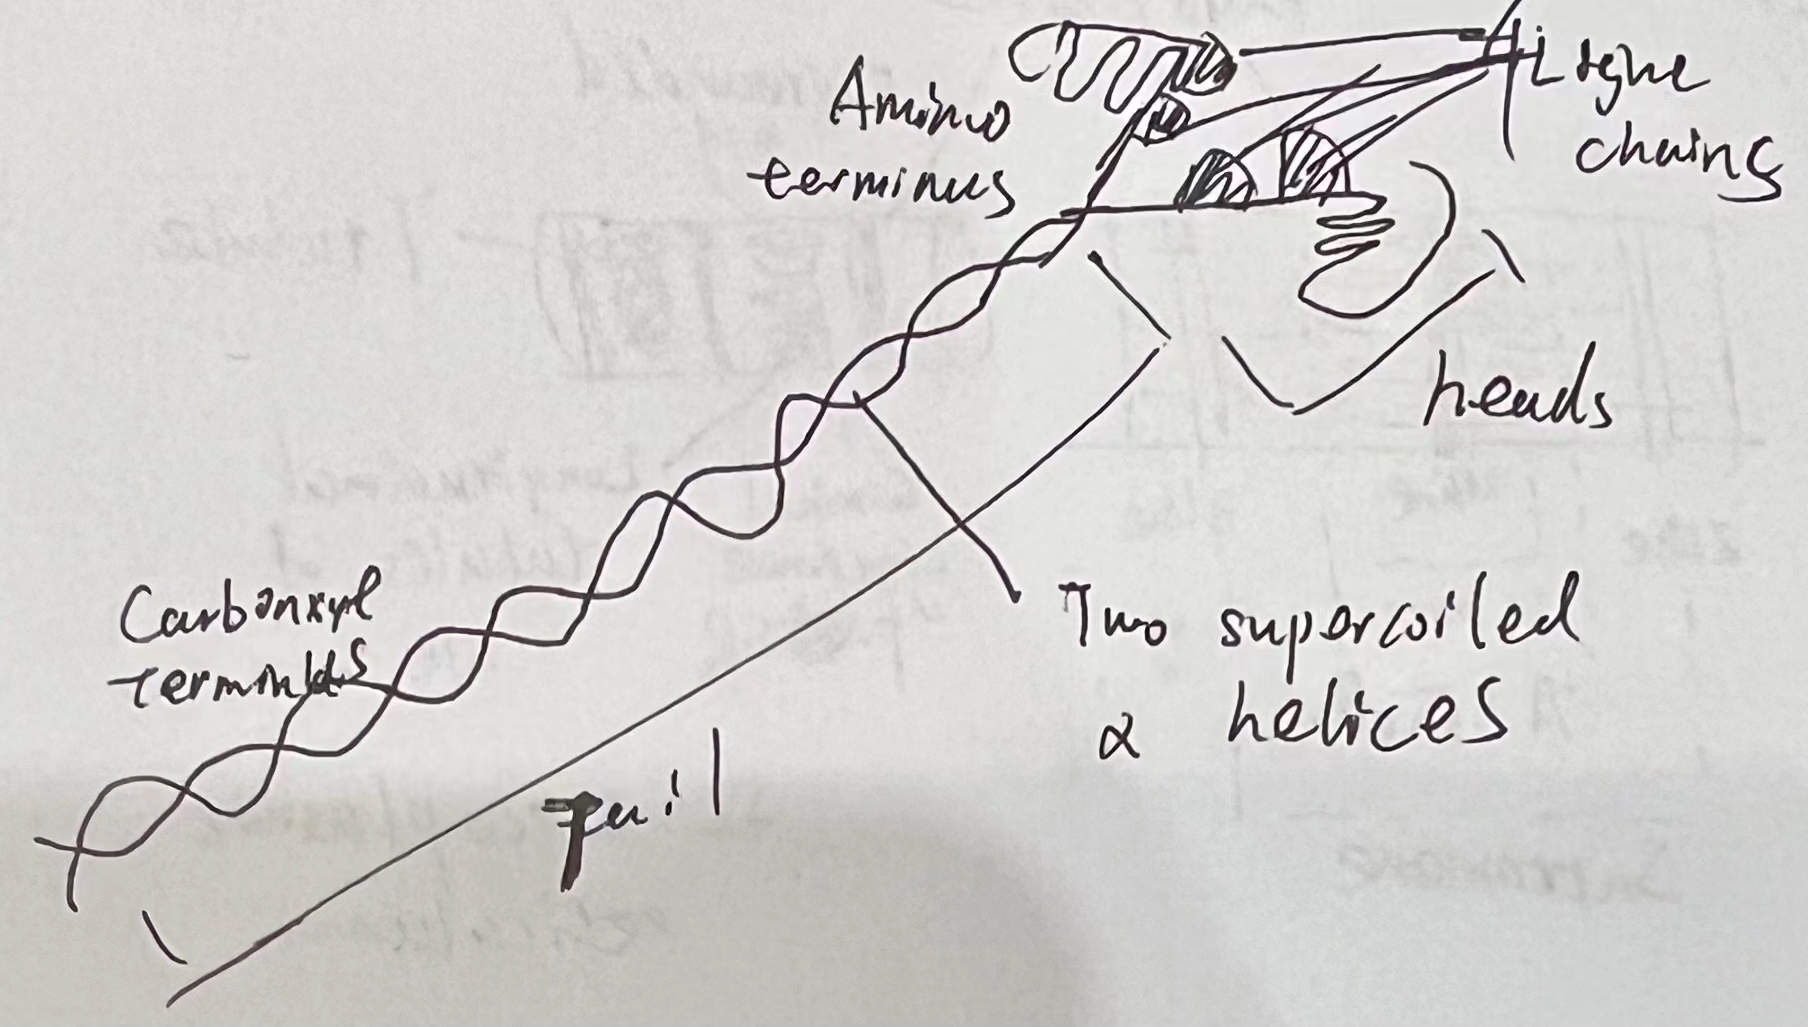 Amino
terminus
Ligne
chains
heads
Carbonxyl
terminus
Two supercoiled
α helices
Tail